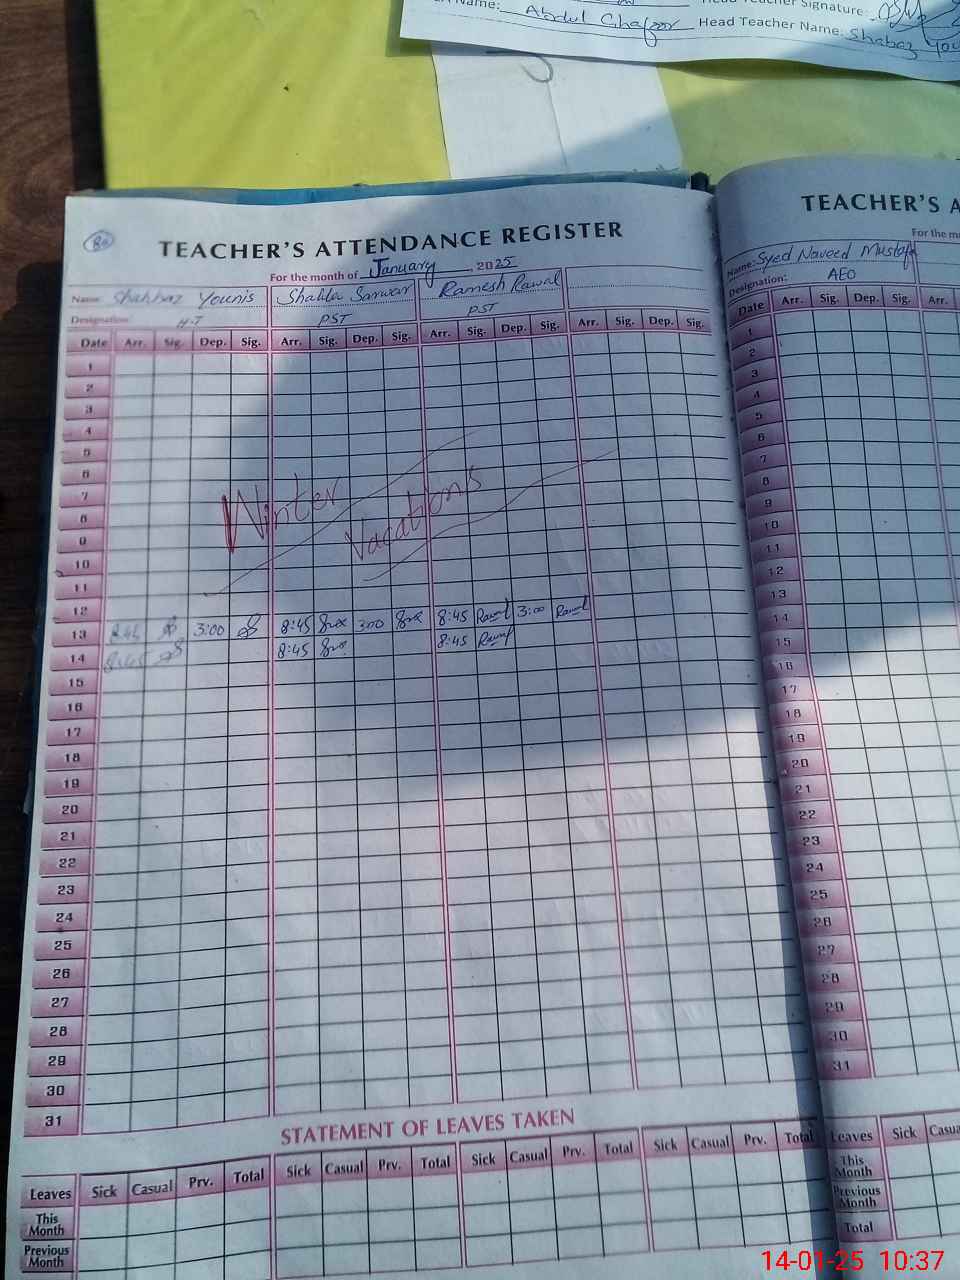 Name: Abdul Ghafoor Head Teacher Signature:
Head Teacher Name: Shabaz
80
TEACHER'S ATTENDANCE REGISTER
For the month of January, 2025
Name Shahbaz Younis Shahla Sarwar Ramesh Rawal
Designation: H-T PST PST
Date Arr. Sig. Dep. Sig. Arr. Sig. Dep. Sig. Arr. Sig. Dep. Sig. Arr. Sig. Dep. Sig.
1
2
3
4
5
6
7
Winter Vacations
8
9
10
11
12
13 8:45 3:00 8:45 3:00 8:45 Rawal 3:00 Rawal
14 8:45 8:45 8:45 Rawal
15
16
17
18
19
20
21
22
23
24
25
26
27
28
29
30
31
STATEMENT OF LEAVES TAKEN
Leaves Sick Casual Prv. Total Sick Casual Prv. Total Sick Casual Prv. Total Sick Casual Prv. Total
This Month
Previous Month
TEACHER'S A
For the m
Name: Syed Naveed Mustafa
Designation: AEO
Date Arr. Sig. Dep. Sig. Arr.
1
2
3
4
5
6
7
8
9
10
11
12
14
15
16
17
18
19
20
21
22
23
24
25
26
27
28
29
30
31
Leaves Sick Casua
This Month
Previous Month
Total
14-01-25 10:37